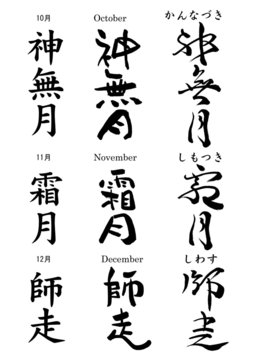 10月 October かんなづき
神無月 神無月 神無月
11月 November しもつき
霜月 霜月 霜月
12月 December しわす
師走 師走 師走